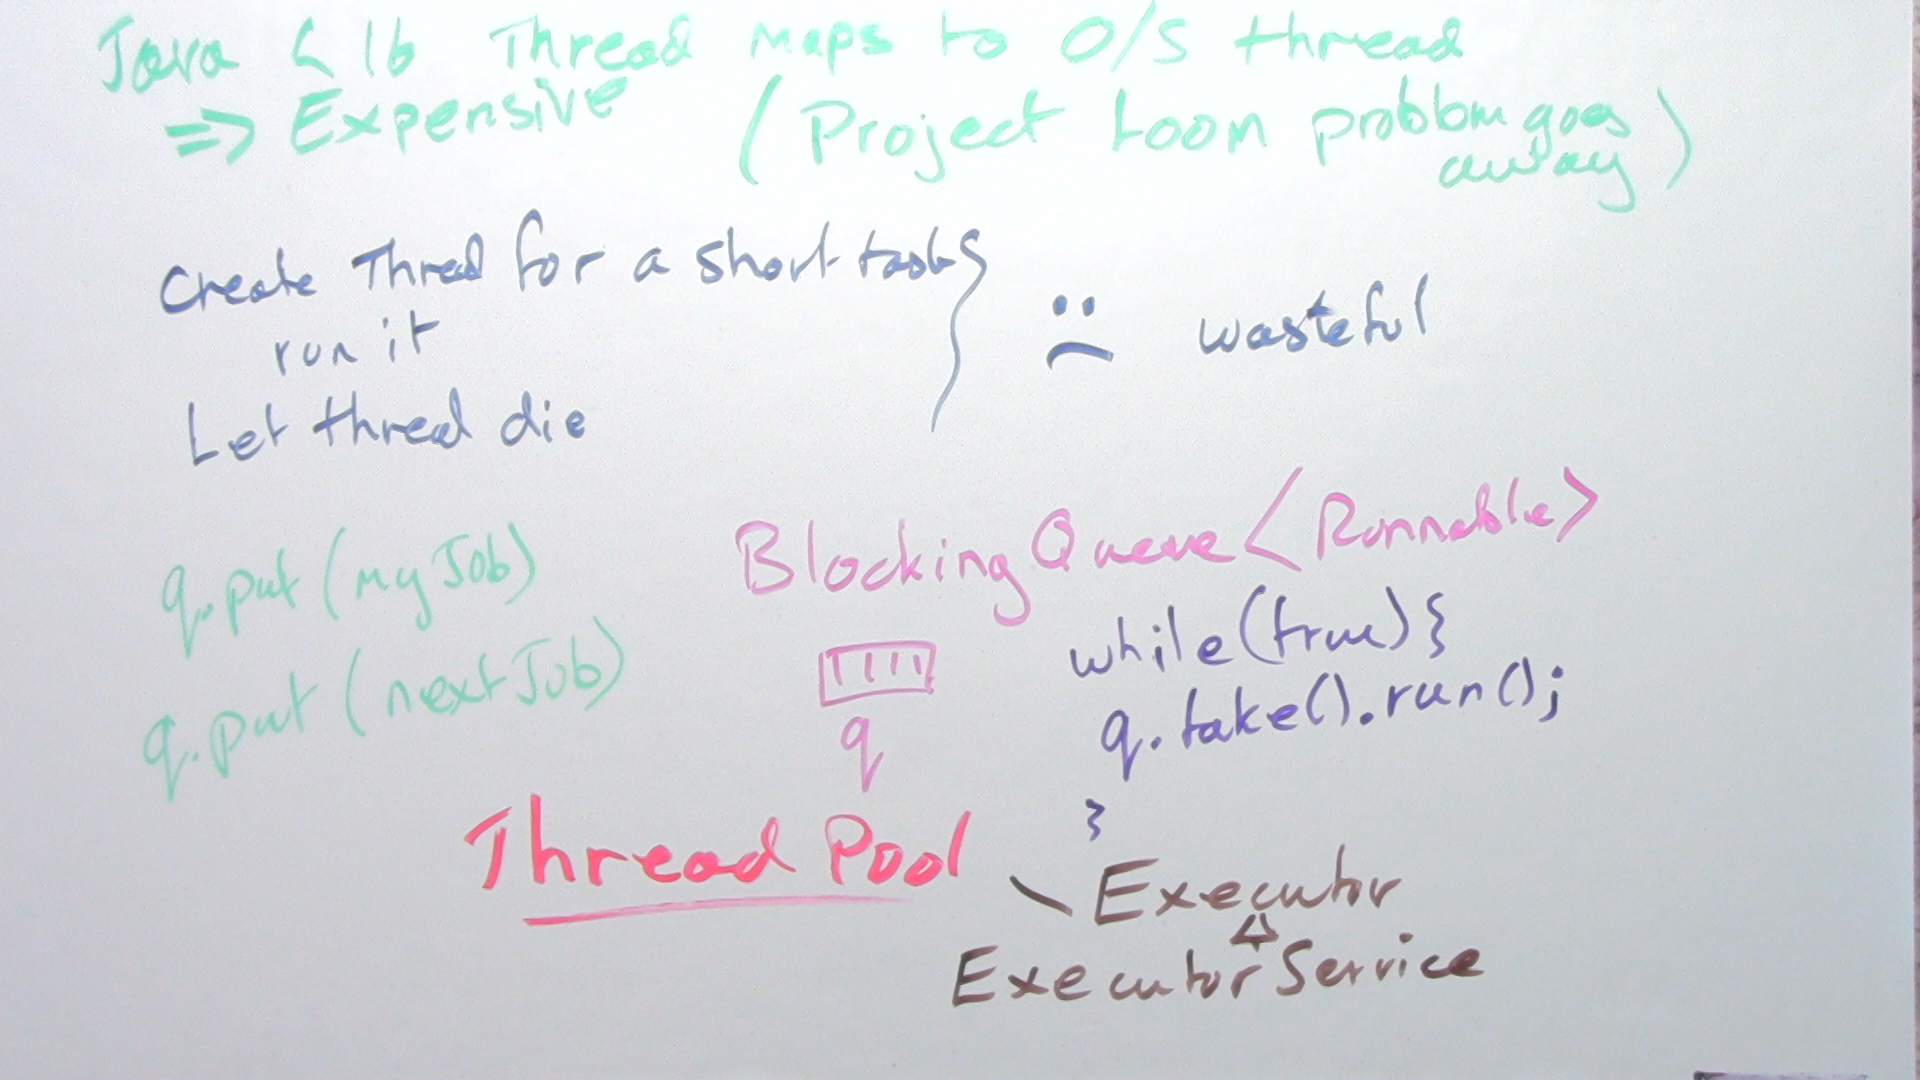 Java < 16 Thread maps to O/S thread
=> Expensive (Project Loom problem goes away)
Create Thread for a short task }
run it
Let thread die
wasteful
BlockingQueue<Runnable>
q.put(myJob)
q.put(nextJob)
q
while(true){
q.take().run();
}
Thread Pool
Executor
ExecutorService